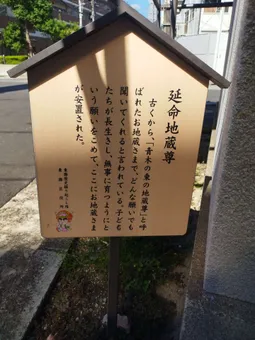 延命地蔵尊
古くから、「青木の東の地蔵尊」と呼
ばれたお地蔵さまで、どんな願いでも
聞いてくれると言われている。子ども
たちが長生きし、無事に育つようにと
いう願いをこめて、ここにお地蔵さま
が安置された。